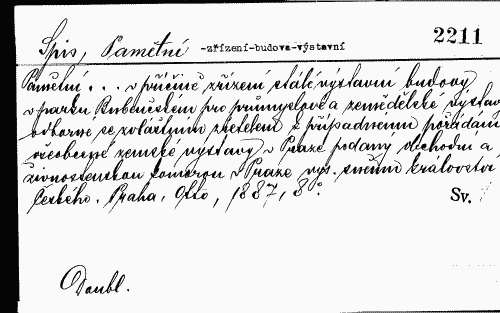 Spis, Pamětní -zřízení-budova-výstavní 2211
Pamětní . . . v příčině zřízení stálé výstavní budovy
v parku Bubenčském pro průmyslové a zemědělské výstav
odborné se zvláštním zřetelem k případnému pořádání
všeobecné zemské výstavy v Praze podaný obchodní a
živnostenskou komorou v Praze vys. sněmu království
Českého. Praha, Otto, 1887, 8°. Sv.
Doubl.